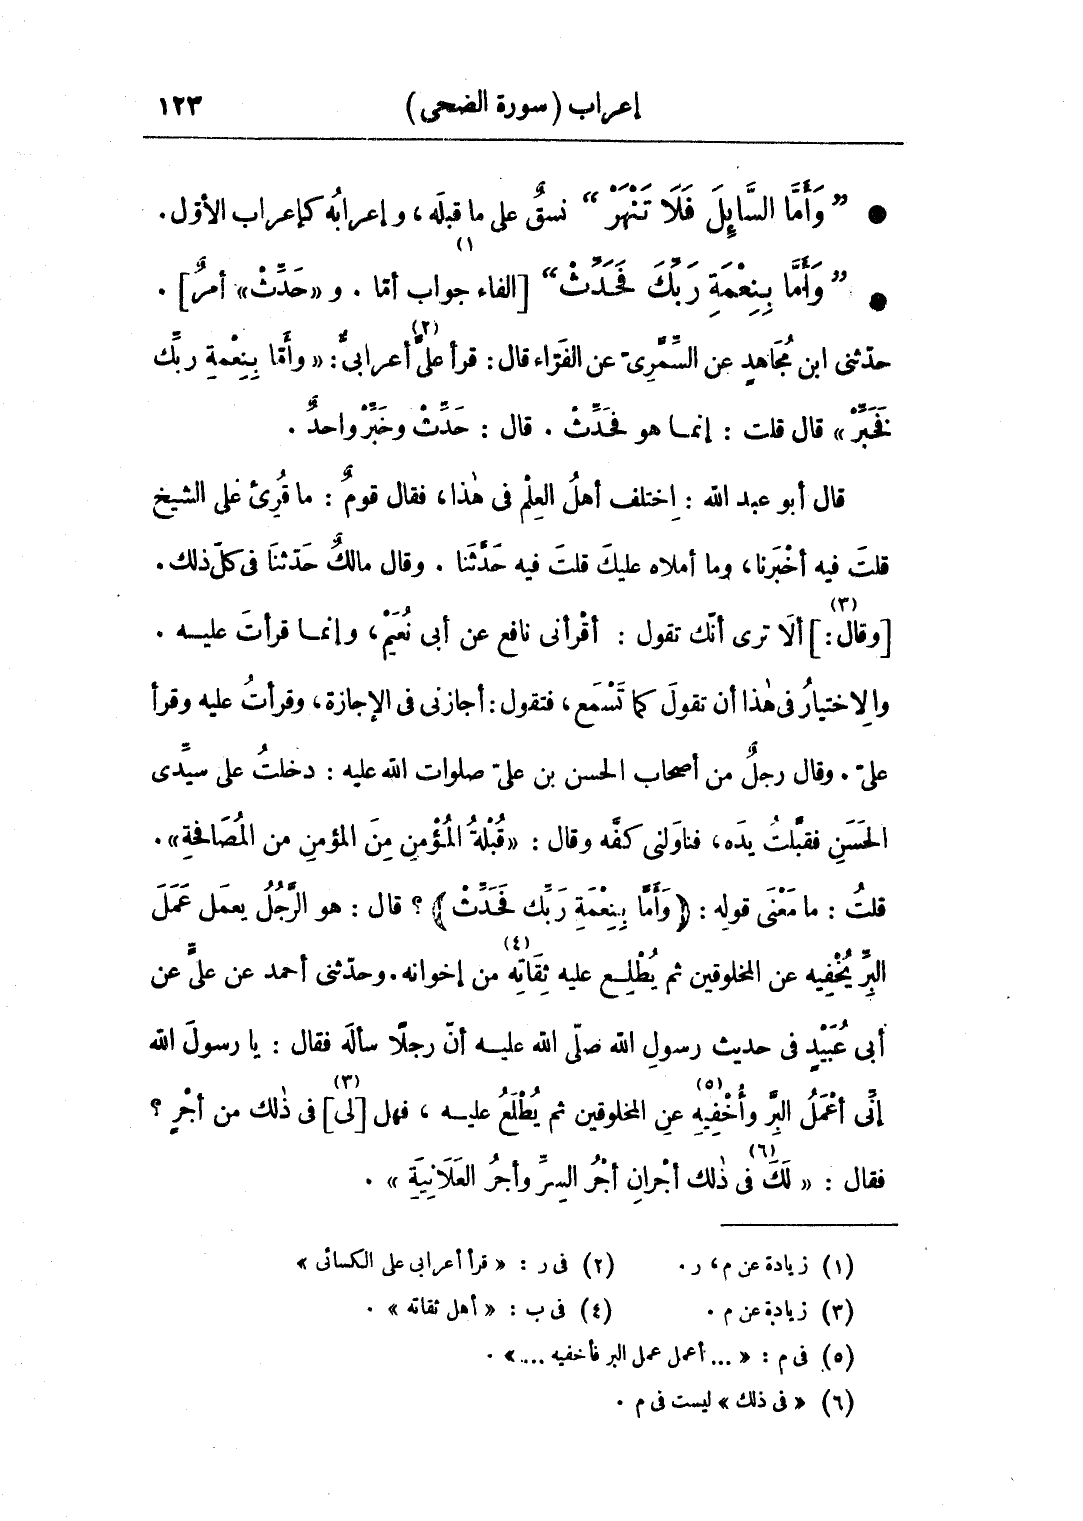 إعراب (سورة الضحى) ١٢٣
● ” وَأَمَّا السَّايِلَ فَلَا تَنْهَرْ “ نسقٌ على ما قبلَه ، و إعرابُه كإعراب الأوّل .
● ” وَأَمَّا بِنِعْمَةِ رَبِّكَ فَحَدِّثْ “ (١) [الفاء جواب أمّا . و «حَدِّثْ» أمرٌ] .
حدّثنى ابن مُجَاهدٍ عن السِّمَّرِىّ عن الفَرّاء قال : قرأ علىَّ (٢) أعرابىٌّ : « وأَمّا بِنِعْمةِ ربِّك
فَخَبِّرْ » قال قلت : إنمـا هو فَحَدِّثْ . قال : حَدِّثْ وخَبِّرْ واحدٌ .
قال أبو عبد الله : اِختلف أهلُ العِلْم فى هٰذا ، فقال قومٌ : ما قُرِئ على الشيخ
قلتَ فيه أخْبَرنا ، وما أملاه عليكَ قلتَ فيه حَدَّثَنا . وقال مالكٌ حَدّثنَا فى كلّ ذلك .
[وقال :] (٣) ألَا ترى أنّك تقول : أقْرأنى نافع عن أبى نُعَيْم ، و إنمـا قرأتَ عليـه .
والاِختيارُ فى هٰذا أن تقولَ كما تَسْمَع ، فتقول : أجازنى فى الإجازة ، وقرأتُ عليه وقرأ
علىّ . وقال رجلٌ من أصحاب الحسن بن علىّ صلوات الله عليه : دخلتُ على سيِّدى
الحَسَنِ فقبَّلتُ يدَه ، فناوَلنى كفَّه وقال : «قُبْلةُ المُؤْمنِ مِنَ المؤمنِ من المُصَافحةِ» .
قلتُ : ما مَعْنَى قولِه : ﴿ وَأَمَّا بِنِعْمَةِ رَبِّك فَحَدِّثْ ﴾ ؟ قال : هو الرَّجُلُ يعمَل عَمَلَ
البِرِّ يُخْفِيه عن المخلوقين ثم يُطْلِـع عليه ثِقَاتِه (٤) من إخوانه . وحدّثنى أحمد عن علىٍّ عن
أبى عُبَيْدٍ فى حديث رسولِ الله صلّى الله عليـه أنّ رجلًا سألَه فقال : يا رسولَ الله
إنِّى أعْمَلُ البِرَّ وأُخْفِيهِ (٥) عنِ المخلوقين ثم يُطْلَعُ عليـه ، فهل [لى] (٣) فى ذٰلك من أجْرٍ ؟
فقال : « لَكَ فى ذٰلك (٦) أجْرانِ أجْرُ السِرِّ وأجرُ العَلَانِيَةِ » .
(١) زيادة عن م ، ر . (٢) فى ر : « قرأ أعرابى على الكسائى »
(٣) زيادة عن م . (٤) فى ب : « أهل ثقاته » .
(٥) فى م : « ... أعمل عمل البر فأخفيه ... » .
(٦) « فى ذلك » ليست فى م .